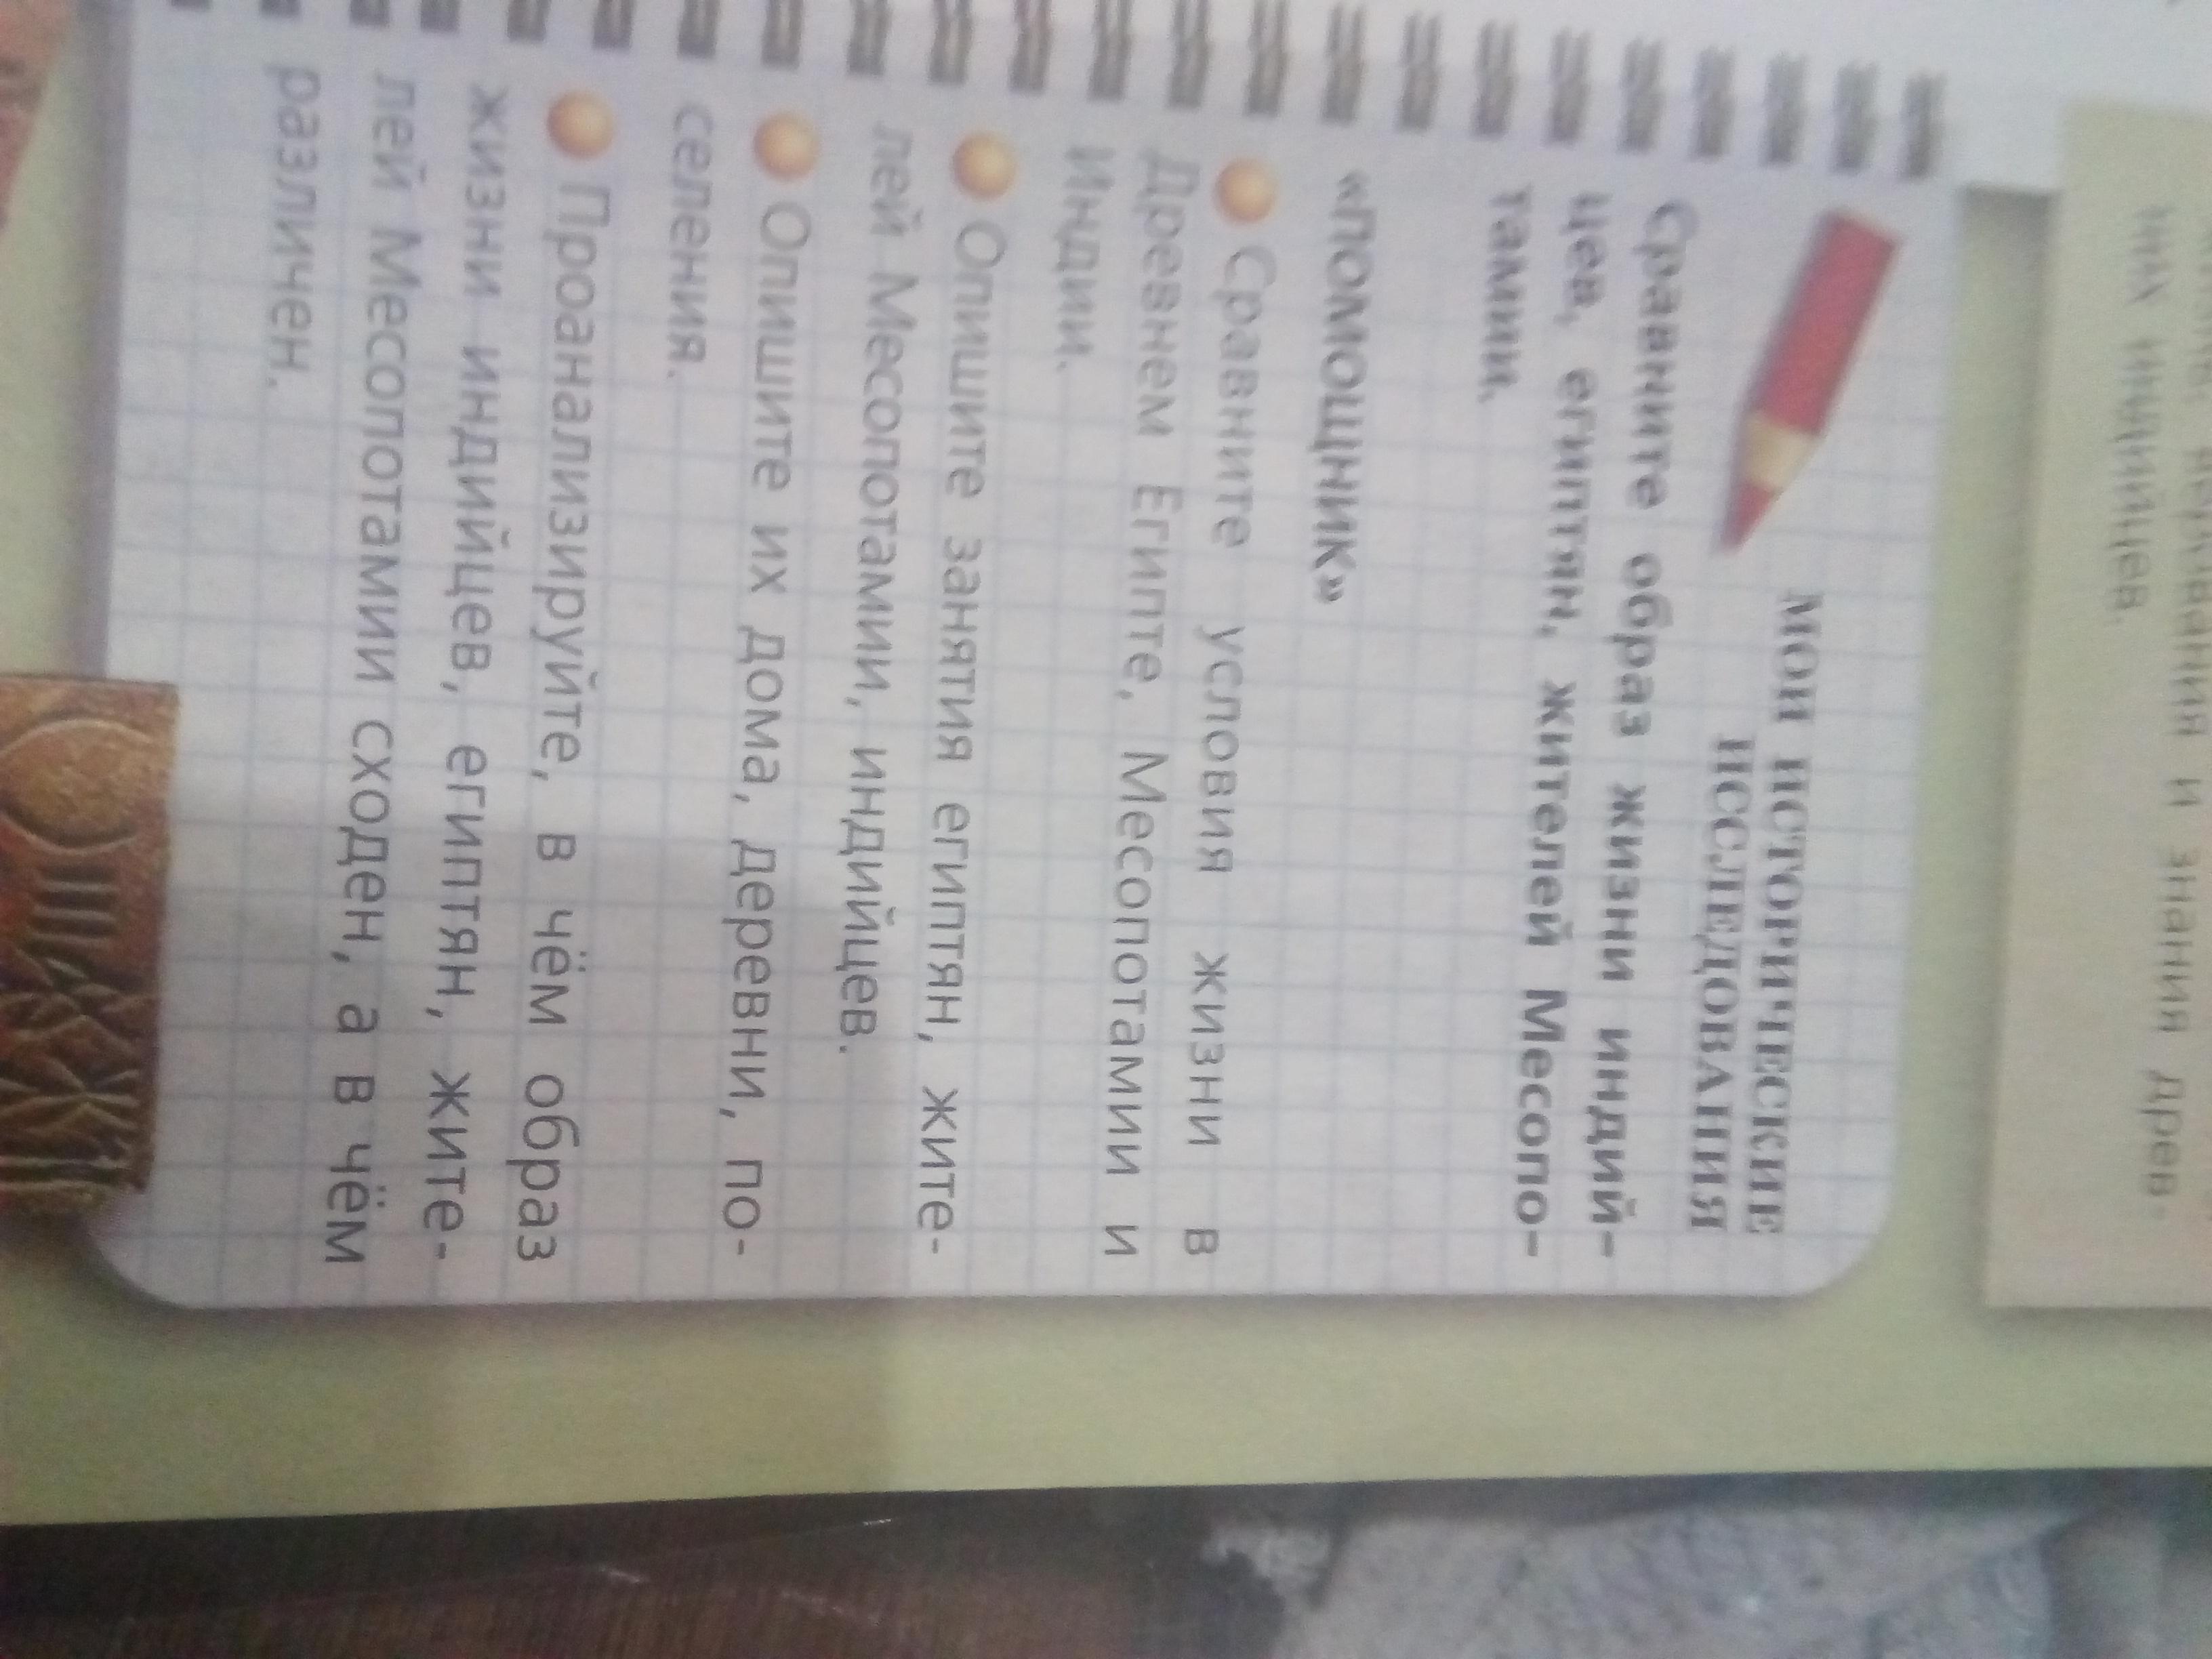 и знания древ-
них индийцев.
МОИ ИСТОРИЧЕСКИЕ
ИССЛЕДОВАНИЯ
Сравните образ жизни индий-
цев, египтян, жителей Месопо-
тамии.
«ПОМОЩНИК»
Сравните условия жизни в
Древнем Египте, Месопотамии и
Индии.
Опишите занятия египтян, жите-
лей Месопотамии, индийцев.
Опишите их дома, деревни, по-
селения.
Проанализируйте, в чём образ
жизни индийцев, египтян, жите-
лей Месопотамии сходен, а в чём
различен.